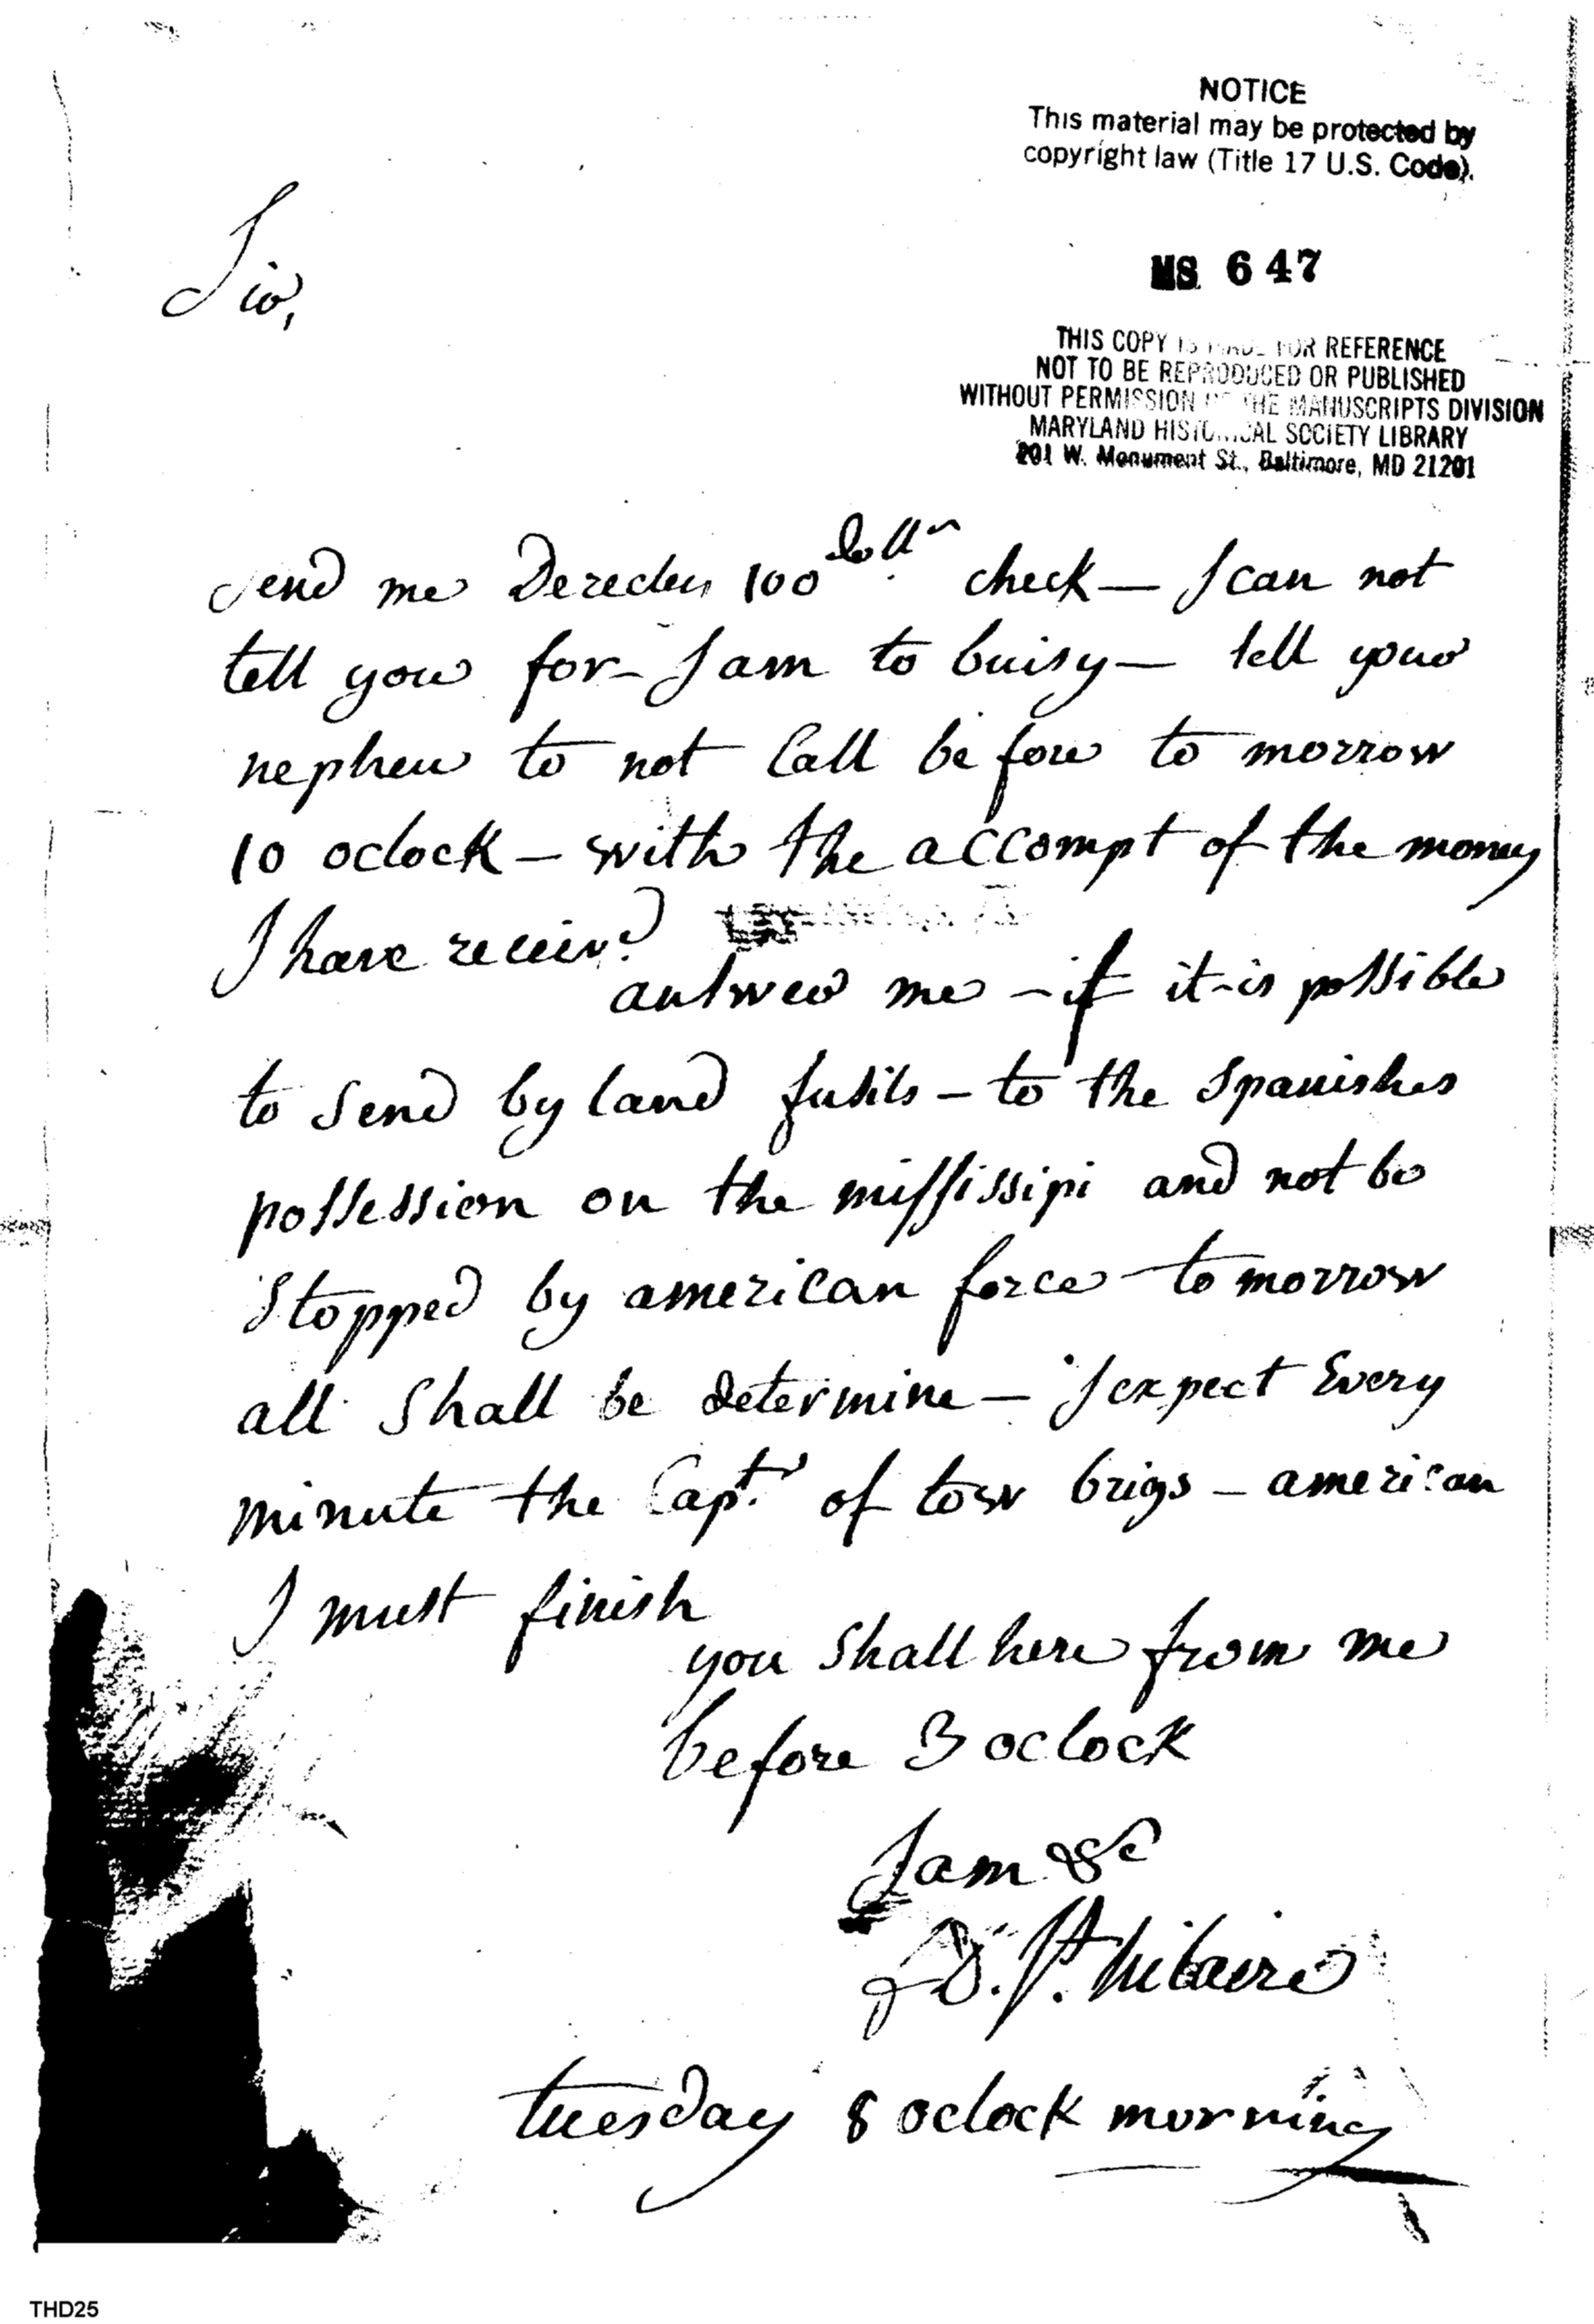 NOTICE
This material may be protected by
copyright law (Title 17 U.S. Code).
MS 647
Sir,
THIS COPY IS MADE FOR REFERENCE
NOT TO BE REPRODUCED OR PUBLISHED
WITHOUT PERMISSION OF THE MANUSCRIPTS DIVISION
MARYLAND HISTORICAL SOCIETY LIBRARY
201 W. Monument St., Baltimore, MD 21201
Send me 100 Dollrs check — I can not
tell you for — I am to buisy — tell your
nephew to not Call before to morrow
10 oclock — with the accompt of the money
I have receiv.d
answer me — if it is possible
to Send by land fusils — to the Spanishes
possession on the missisipi and not be
Stopped by american force to morrow
all Shall be determine — I expect Every
minute the Capt. of tow brigs — american
I must finish
you Shall here from me
before 3 oclock
I am &c
D. St. hilaire
tuesday 8 oclock morning
THD25